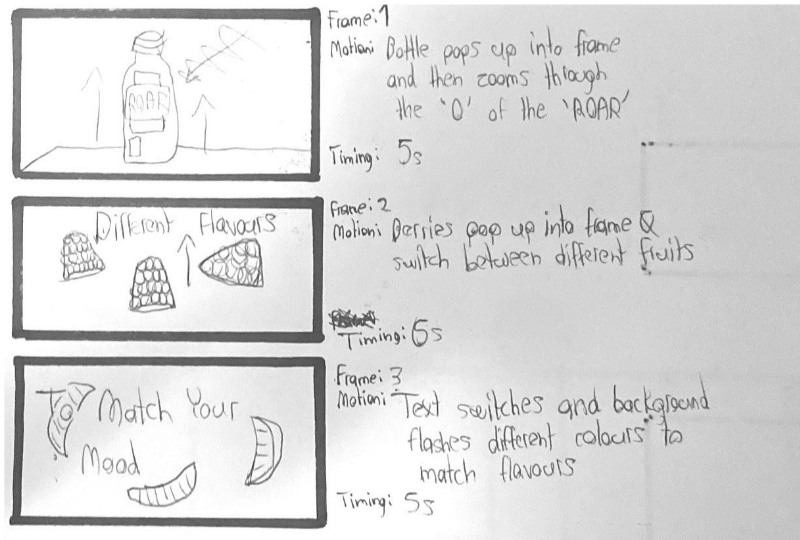 Frame: 1
Motion: Bottle pops up into frame
and then zooms through
the 'O' of the 'ROAR'
ROAR
Timing: 5s
Frame: 2
Motion: Berries pop up into frame &
switch between different fruits
Different Flavours
Timing: 5s
Frame: 3
Motion: Text switches and background
flashes different colours to
match flavours
To Match Your
Mood
Timing: 5s